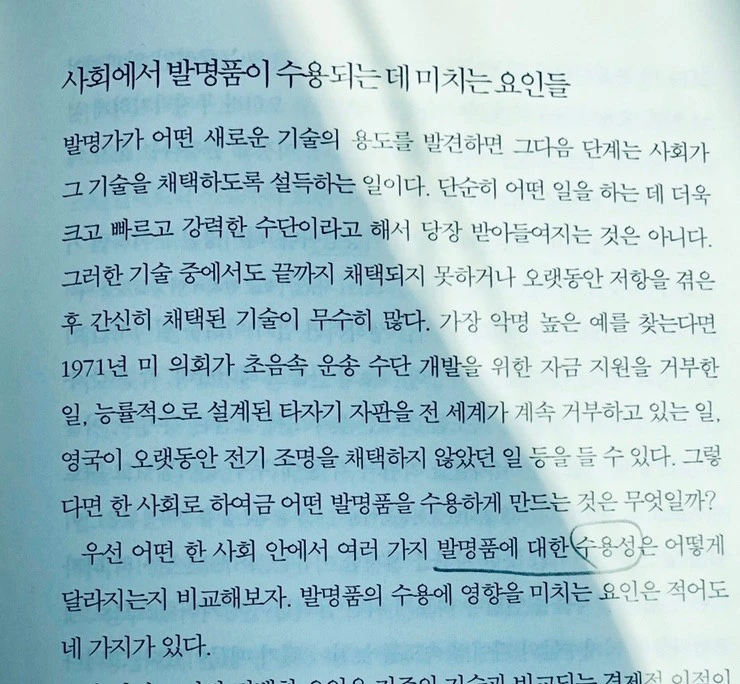 사회에서 발명품이 수용되는 데 미치는 요인들
발명가가 어떤 새로운 기술의 용도를 발견하면 그다음 단계는 사회가
그 기술을 채택하도록 설득하는 일이다. 단순히 어떤 일을 하는 데 더욱
크고 빠르고 강력한 수단이라고 해서 당장 받아들여지는 것은 아니다.
그러한 기술 중에서도 끝까지 채택되지 못하거나 오랫동안 저항을 겪은
후 간신히 채택된 기술이 무수히 많다. 가장 악명 높은 예를 찾는다면
1971년 미 의회가 초음속 운송 수단 개발을 위한 자금 지원을 거부한
일, 능률적으로 설계된 타자기 자판을 전 세계가 계속 거부하고 있는 일,
영국이 오랫동안 전기 조명을 채택하지 않았던 일 등을 들 수 있다. 그렇
다면 한 사회로 하여금 어떤 발명품을 수용하게 만드는 것은 무엇일까?
우선 어떤 한 사회 안에서 여러 가지 발명품에 대한 수용성은 어떻게
달라지는지 비교해보자. 발명품의 수용에 영향을 미치는 요인은 적어도
네 가지가 있다.
요인은 기존의 기술과 비교되는 경제적 이점이